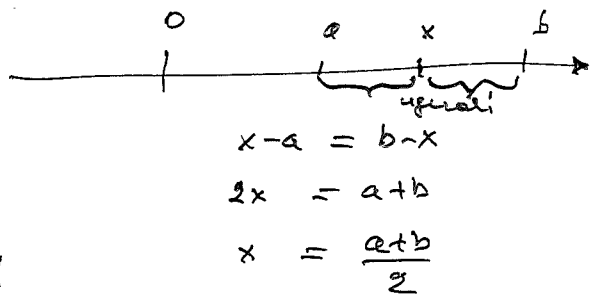 0 a x b
uguali
x-a = b-x
2x = a+b
x = \frac{a+b}{2}